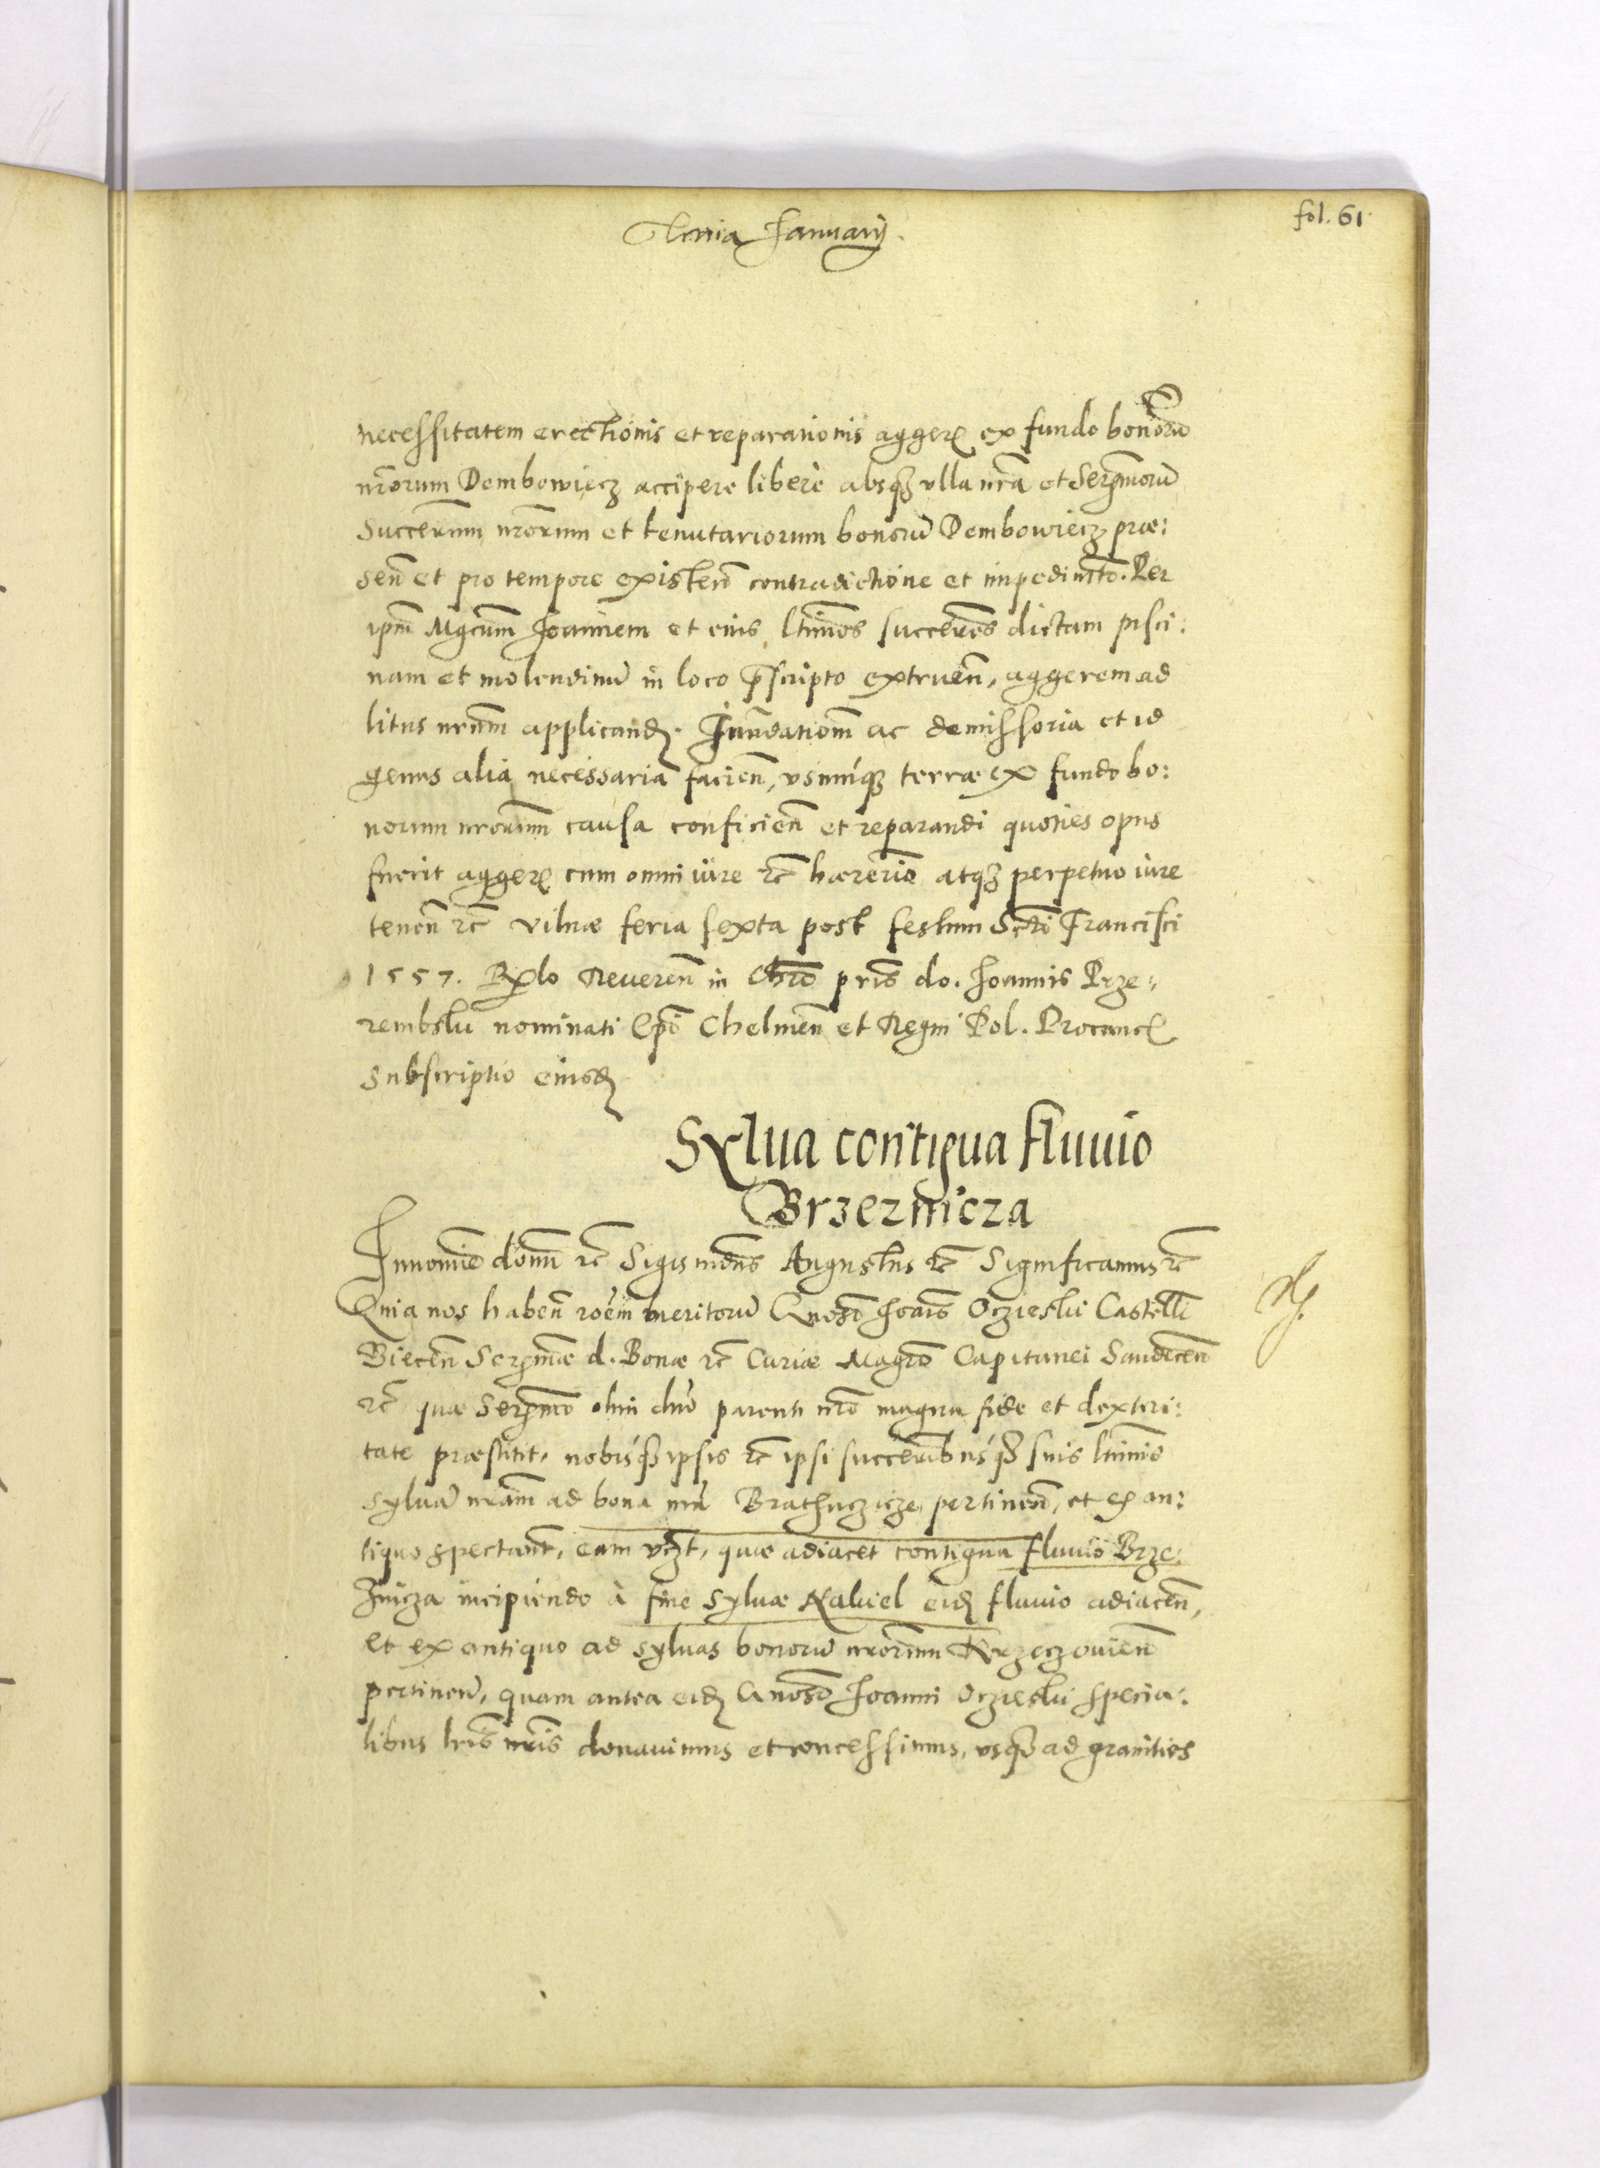 fol. 61
Tertia Januarij.
necessitatem erectionis et reparationis aggeris ex fundo bonorū
nr̄orum Dembowiecz accipere libere absq3 vlla nr̄a et Ser̄morū
Succer̄um nr̄orum et tenutariorum bonorū Dembowiecz prae:
sen̄ et pro tempore existen̄ contradictione et impedimēto. Per
ipm̄ Mgcūm Joannem et eius ltimōs succerēs dictam pisci:
nam et molendinū in loco p̄scripto extruen̄, aggerem ad
litus nr̄um applicand. Inundationem ac demissoria et id
genus alia necessaria facien̄, vsumq3 terrae ex fundo bo:
norum nr̄orum causa conficien̄ et reparandi quoties opus
fuerit aggeris cum omni iure rc̄ haerērio atq3 perpetuo iure
tenen̄ rc̄ Vilnae feria sexta post festum Scti Francisci
1557. Rlo Reueren̄ in Chr̄o pris̄ do. Joannis Prze:
rembski nominati Ep̄i Chelmen̄ et Regni Pol. Procancel
Subscriptio eiusd
Sylua contigua fluuio
Brzeznicza
In nomīe domi rc̄ Sigismdūs Augustus rc̄ Significamus rc̄
Quia nos haben̄ roēm meritorū Gnōsi Joaīs Oczieski Castellī
Biecen̄ Ser̄mae d. Bonae rc̄ Curiae Magrī Capitanei Sandecen̄
rc̄ quae Ser̄mo olim dn̄o parenti nr̄o magna fide et dexteri:
tate praestitit, nobisq3 ipsis rc̄ ipsi succerībusq3 suis ltimis
syluā nr̄am ad bona nr̄a Brathuczicze pertinen̄, et ex an:
tiquo spectan̄t, eam vczt, quae adiacet contigua fluuio Brze:
znicza incipiendo à fine syluae Kaliel eid fluuio adiacen̄,
et ex antiquo ad syluas bonorū nr̄orum Krzeczouien̄
pertinen̄, quam antea eid Gnōso Joanni Oczieski specia:
libus lris̄ nr̄is donauimus et concessimus, vsq3 ad granities